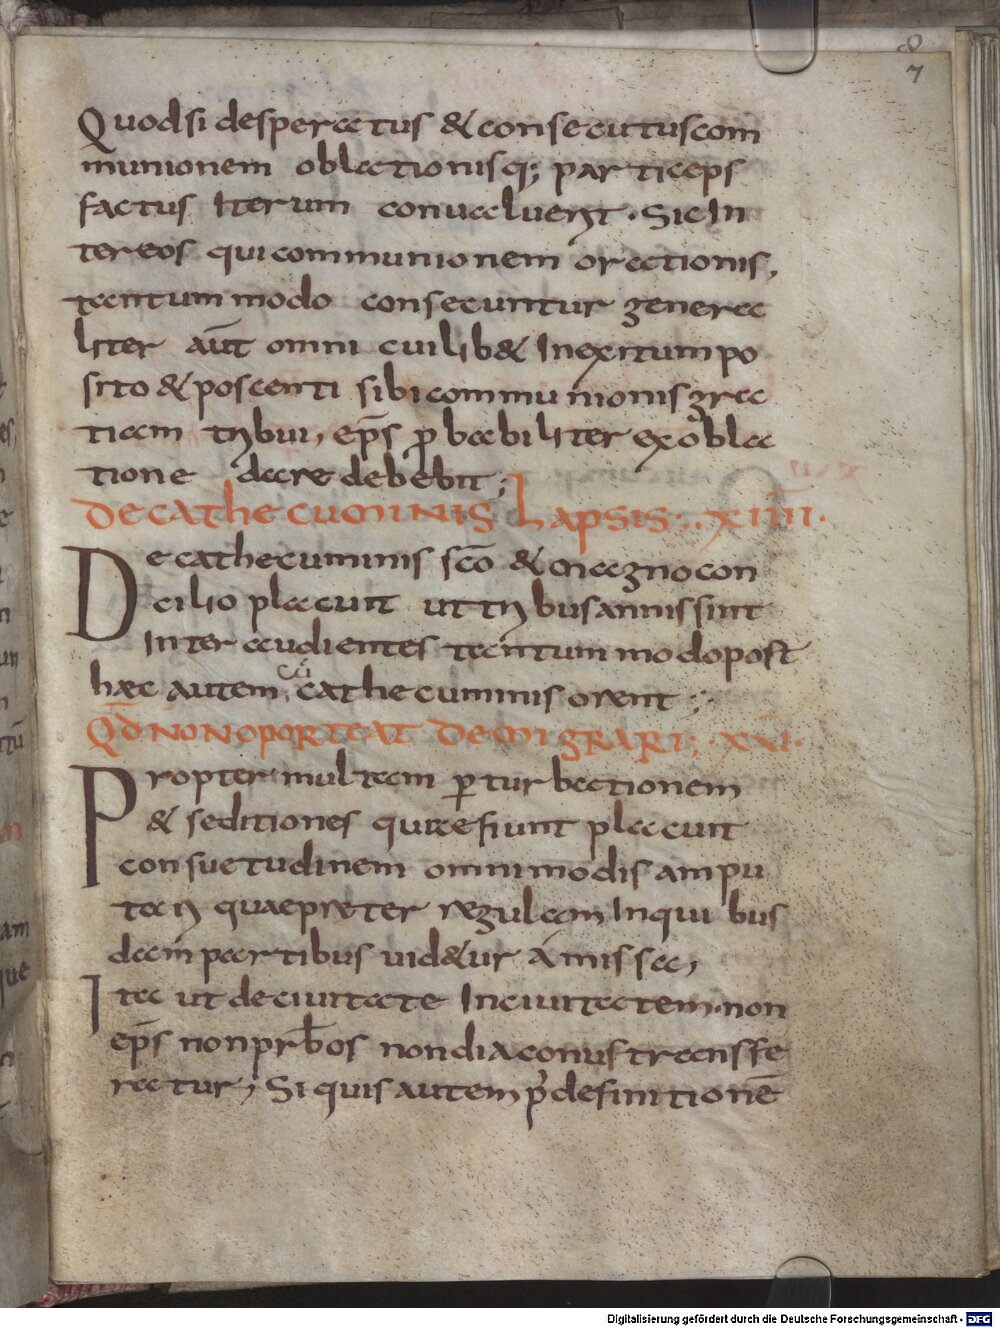 8
7
Quodsi desperatus & consecutus com
munionem oblationisq; particeps
factus Iterum conualuerit. Sic In
ter eos qui communionem orationis,
tantum modo consecuntur genera
liter aūt omni cuilib& In exitum po
sito & poscenti sibi communionis gra
tiam tribui, ep̄s ꝓbabiliter ex obla
tione dare debebit;
DE CATHECUMINIS LAPSIS. XIIII.
De cathecuminis sc̄o & magno con
cilio placuit ut tribus annis sint
Inter audientes tantum modo post
haec autem cū cathecuminis orent;
QD̄ NON OPORTEAT DEMIGRARI; XXI.
Propter multam ꝑturbationem
& seditiones quae fiunt placuit
consuetudinem omnimodis ampu
tari quae praeter regulam In quibus
dam partibus uid&ur Amissa,
Ita ut de ciuitate In ciuitatem non
ep̄s non prb̄os non diaconus transfe
ratur; Si quis autem p̄ definitionē
Digitalisierung gefördert durch die Deutsche Forschungsgemeinschaft - DFG